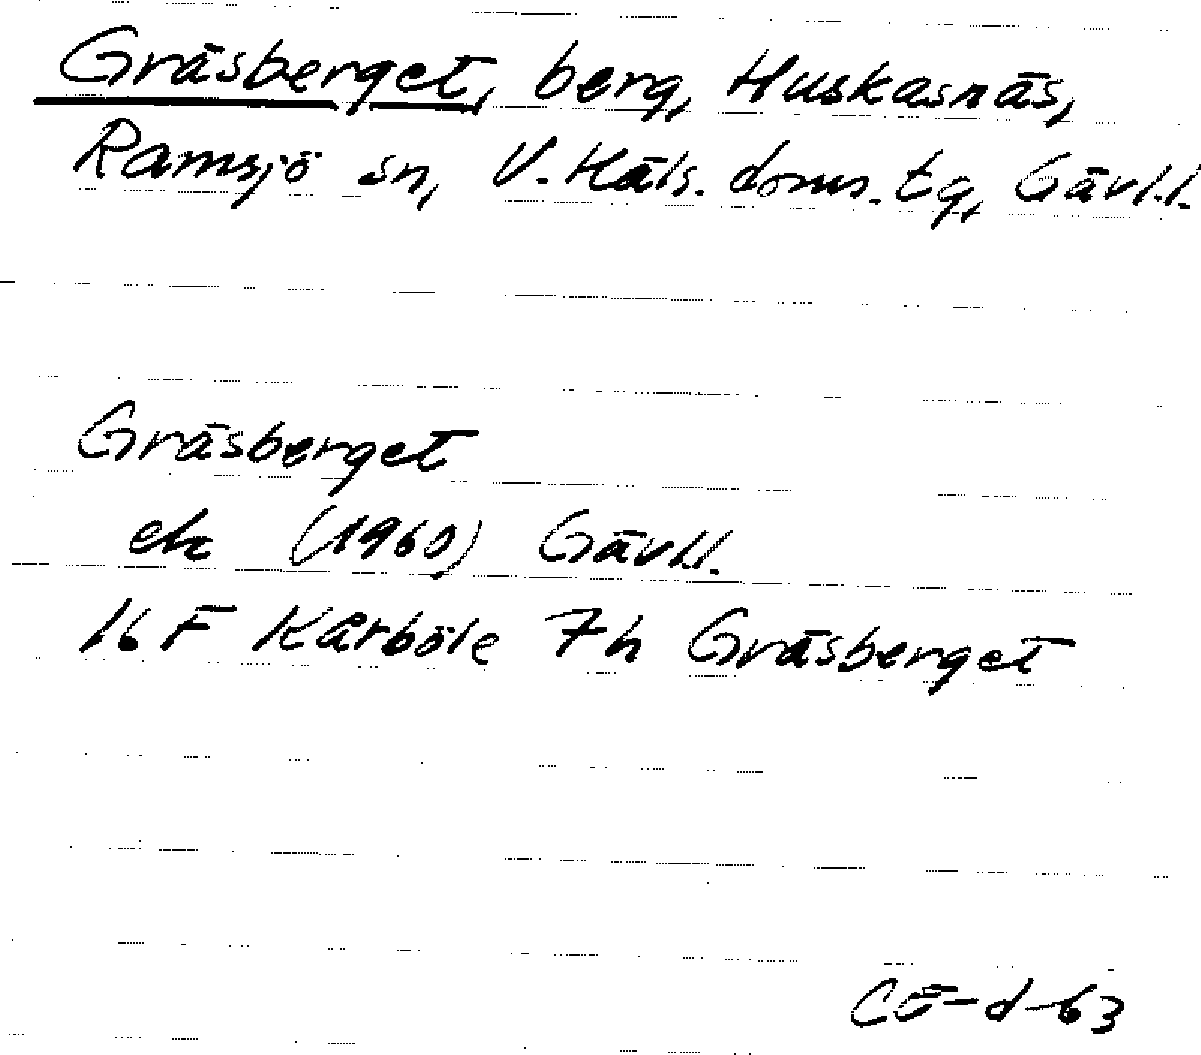 Gräsberget, berg, Huskasnäs,
Ramsjö sn, V. Häls. doms. tg, Gävl.l.
Gräsberget
ek (1960) Gävl.l.
16 F Kårböle 7h Gräsberget
CÖ-d-63